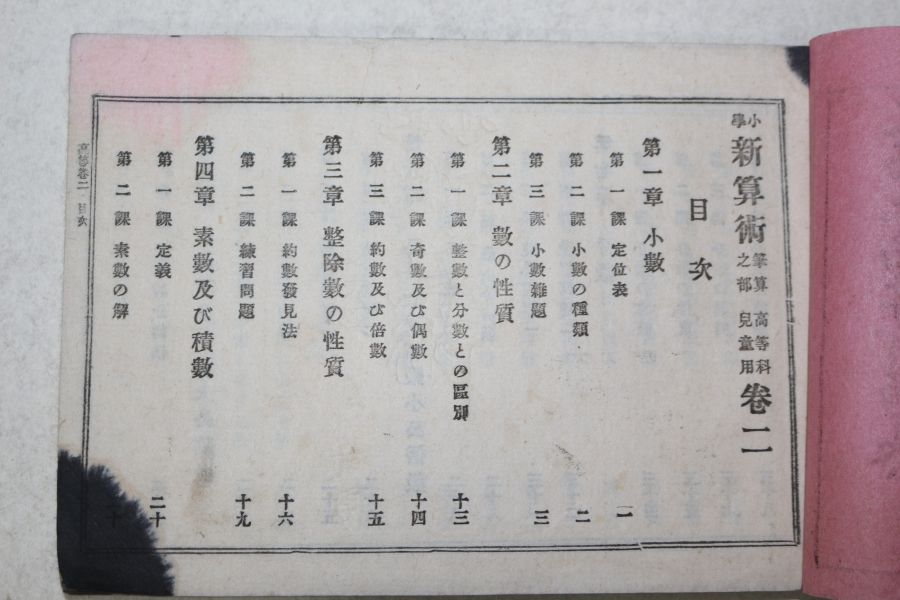 小學新算術 筆算之部 高等科兒童用 卷二
目次
第一章 小數
第一課 定位表 一
第二課 小數の種類 二
第三課 小數雜題 三
第二章 數の性質
第一課 整數と分數との區別 十三
第二課 奇數及び偶數 十四
第三課 約數及び倍數 十五
第三章 整除數の性質
第一課 約數發見法 十六
第二課 練習問題 十九
第四章 素數及び積數
第一課 定義 二十
第二課 素數の解
高等卷二 目次